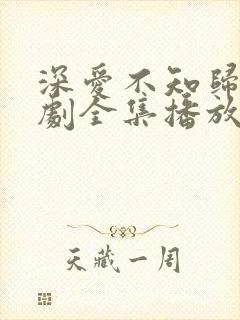 深爱不知歸
劇全集播放
天藏一周